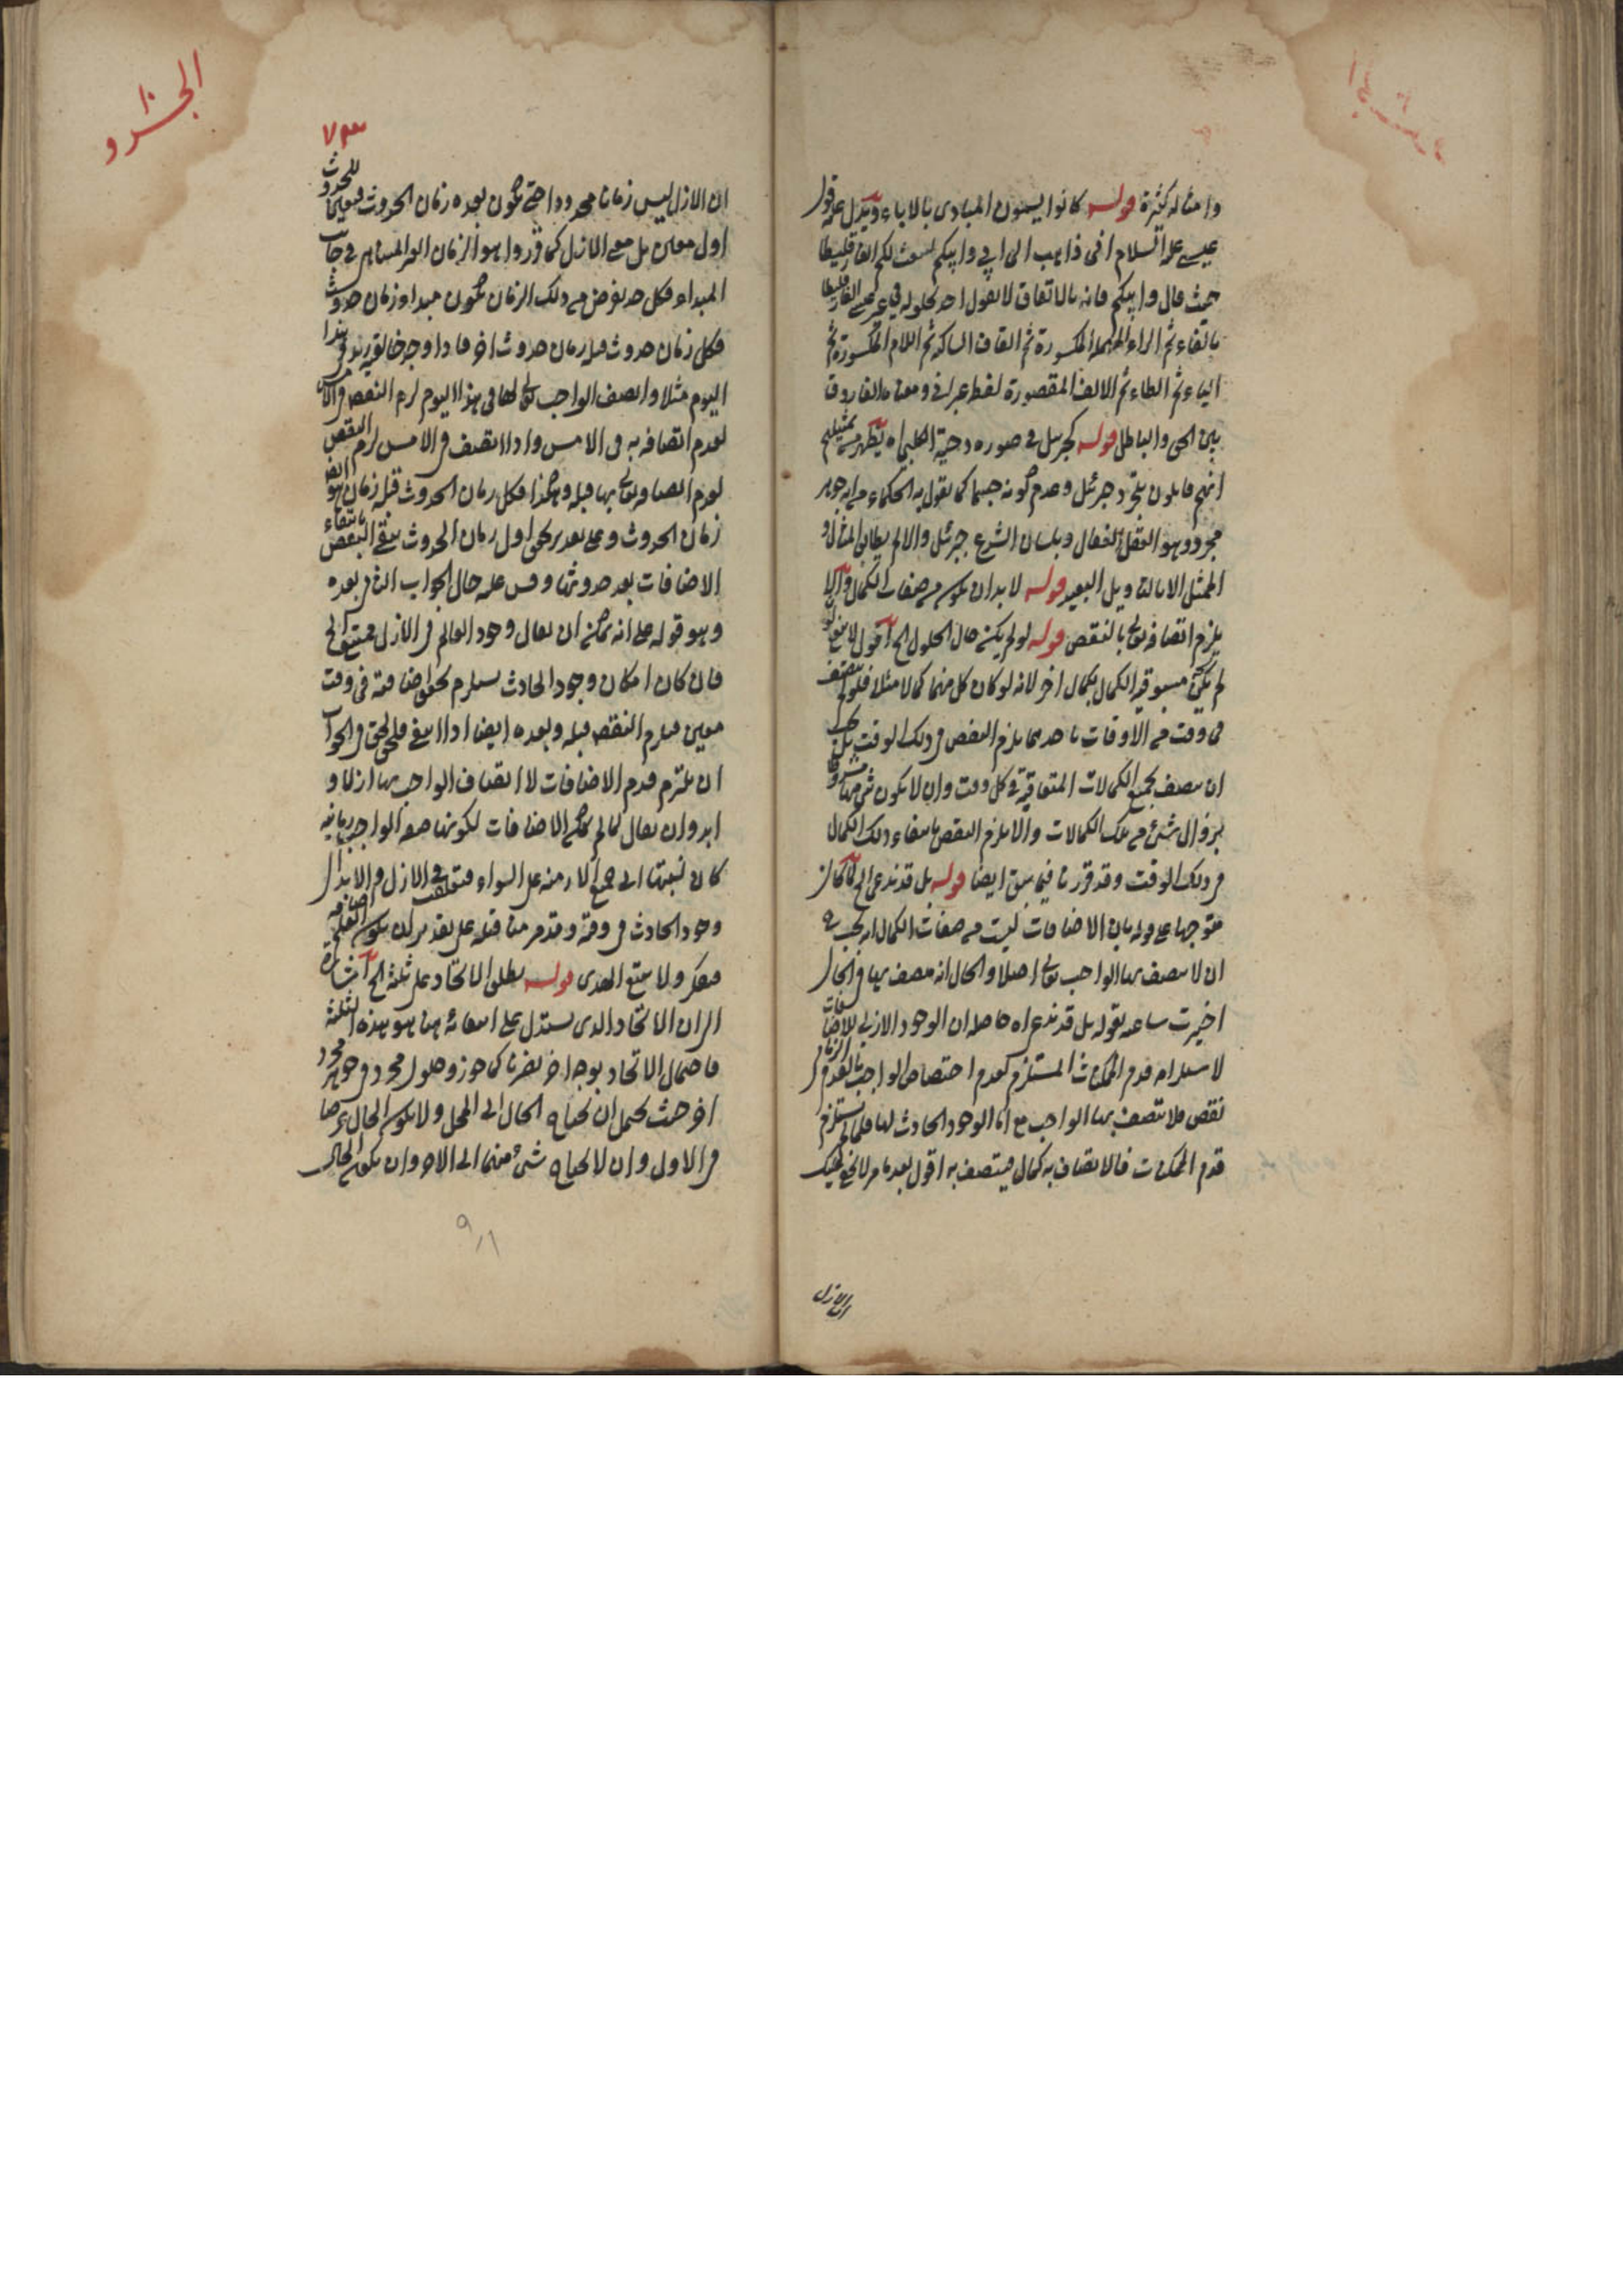 وامثاله كثيرة قوله كانوا يسمون المبادى بالاباء ويدل عليه قول
عيسى عليه السلام انى ذاهب الى ابي وابيكم ليبعث لكم الفارقليطا
حيث قال وابيكم فانه بالاتفاق لا يقول احد بحلوله في غير عيسى الفارقليطا
بالفاء ثم الراء المهملة المكسورة ثم القاف الساكنة ثم اللام المكسورة ثم
الياء ثم الطاء ثم الالف المقصورة لفظ عبرانى ومعناه الفاروق
بين الحق والباطل قوله كجبرئيل في صورة دحية الكلبي اه يظهر من تمثيلهم
انهم قايلون بتجرد جبرئيل وعدم كونه جسما كما يقول به الحكماء من انه جوهر
مجرد وهو العقل الفعال وبلسان الشرع جبرئيل والا لم يطابق المثال
الممثل الا بالتاويل البعيد قوله لا بد ان يكون من صفات الكمال والا
يلزم اتصافه تعالى بالنقص قوله لو لم يكن حال الحلول الخ اقول
لم يكن مسبوقية الكمال بكمال اخر لانه لو كان كل منهما كمالا مثلا فلو لم يتصف
فى وقت من الاوقات باحدهما يلزم النقص في ذلك الوقت بل يجب
ان يتصف بجميع الكمالات المتعاقبة في كل وقت وان لا يكون شئ منها مشروطا
بزوال شئ من تلك الكمالات والا يلزم النقص بانتفاء ذلك الكمال
في ذلك الوقت وقد قررنا فيما سبق ايضا قوله بل قد ندعى الخ لما كان
متوجها على قوله بان الاضافات ليست من صفات الكمال انه يجب
ان لا يتصف بها الواجب تعالى اصلا والحال انه متصف بها في الحال
لا ستلزامه قدم الممكنات المستلزم لعدم اختصاص الواجب بالقدم
نقص فلا يتصف بها الواجب مع ان الوجود الحادث لها فلما لم يستلزم
قدم الممكنات فالاتصاف به كمال فيتصف به اقول بعد ما مر لا يخفى عليك
ان الازل
الجزو
١٠
٧٣
ان الازل ليس زمانا محدودا حتى يكون بعده زمان الحدوث
اول معين بل معنى الازل كما قرروا هو الزمان الغير المتناهى في جانب
المبداء فكل حد يفرض من ذلك الزمان يكون مبداء زمان حدوث
فكل زمان حدوث قبله زمان حدوث اخر فاذا اوجد خالقية زيد فى هذا
اليوم مثلا واتصف الواجب تعالى بها فى هذا اليوم لزم النقص في الامس
لعدم اتصافه به فى الامس واذا اتصف في الامس لزم النقص
لعدم اتصافه تعالى بها قبله وهكذا فكل زمان الحدوث قبله زمان هو ايضا
زمان الحدوث وعلى تقدير تحقق اول زمان الحدوث ينتفى النقص بانتفاء
الاضافات بعد حدوثها وقس عليه حال الجواب الذى بعده
وهو قوله على انه يمكن ان يقال وجود العالم في الازل ممتنع الخ
فان كان امكان وجود الحادث يستلزم تحقق اضافته فى وقت
معين فيلزم النقص قبله وبعده ايضا اذا انتفى فالحق في الجواب
ان يلتزم قدم الاضافات لا اتصاف الواجب بها ازلا و
ابدا وان يقال لما لم يكن الاضافات لكونها صفة الواجب زمانية
كان نسبتها الى جميع الازمنة على السواء فتعلقت في الازل والابد
وجود الحادث في وقته وقد مر منا قبله على تقدير ان يكون
فتفكر ولا تتبع الهوى قوله يطلق الاتحاد على ثلثة الخ اشارة
الى ان الاتحاد الذى يستدل على امتناعه هنا هو بهذه الثلثة
فاحتمال الاتحاد بوجه اخر يضرنا كما جوز وحلول مجرد في جوهر مجرد
اخر حيث يحتمل ان يحتاج الحال الى المحل ولا يكون الحال عرضا
في الاول وان لا يحتاج شئ منهما الى الاخر وان يكون الحال